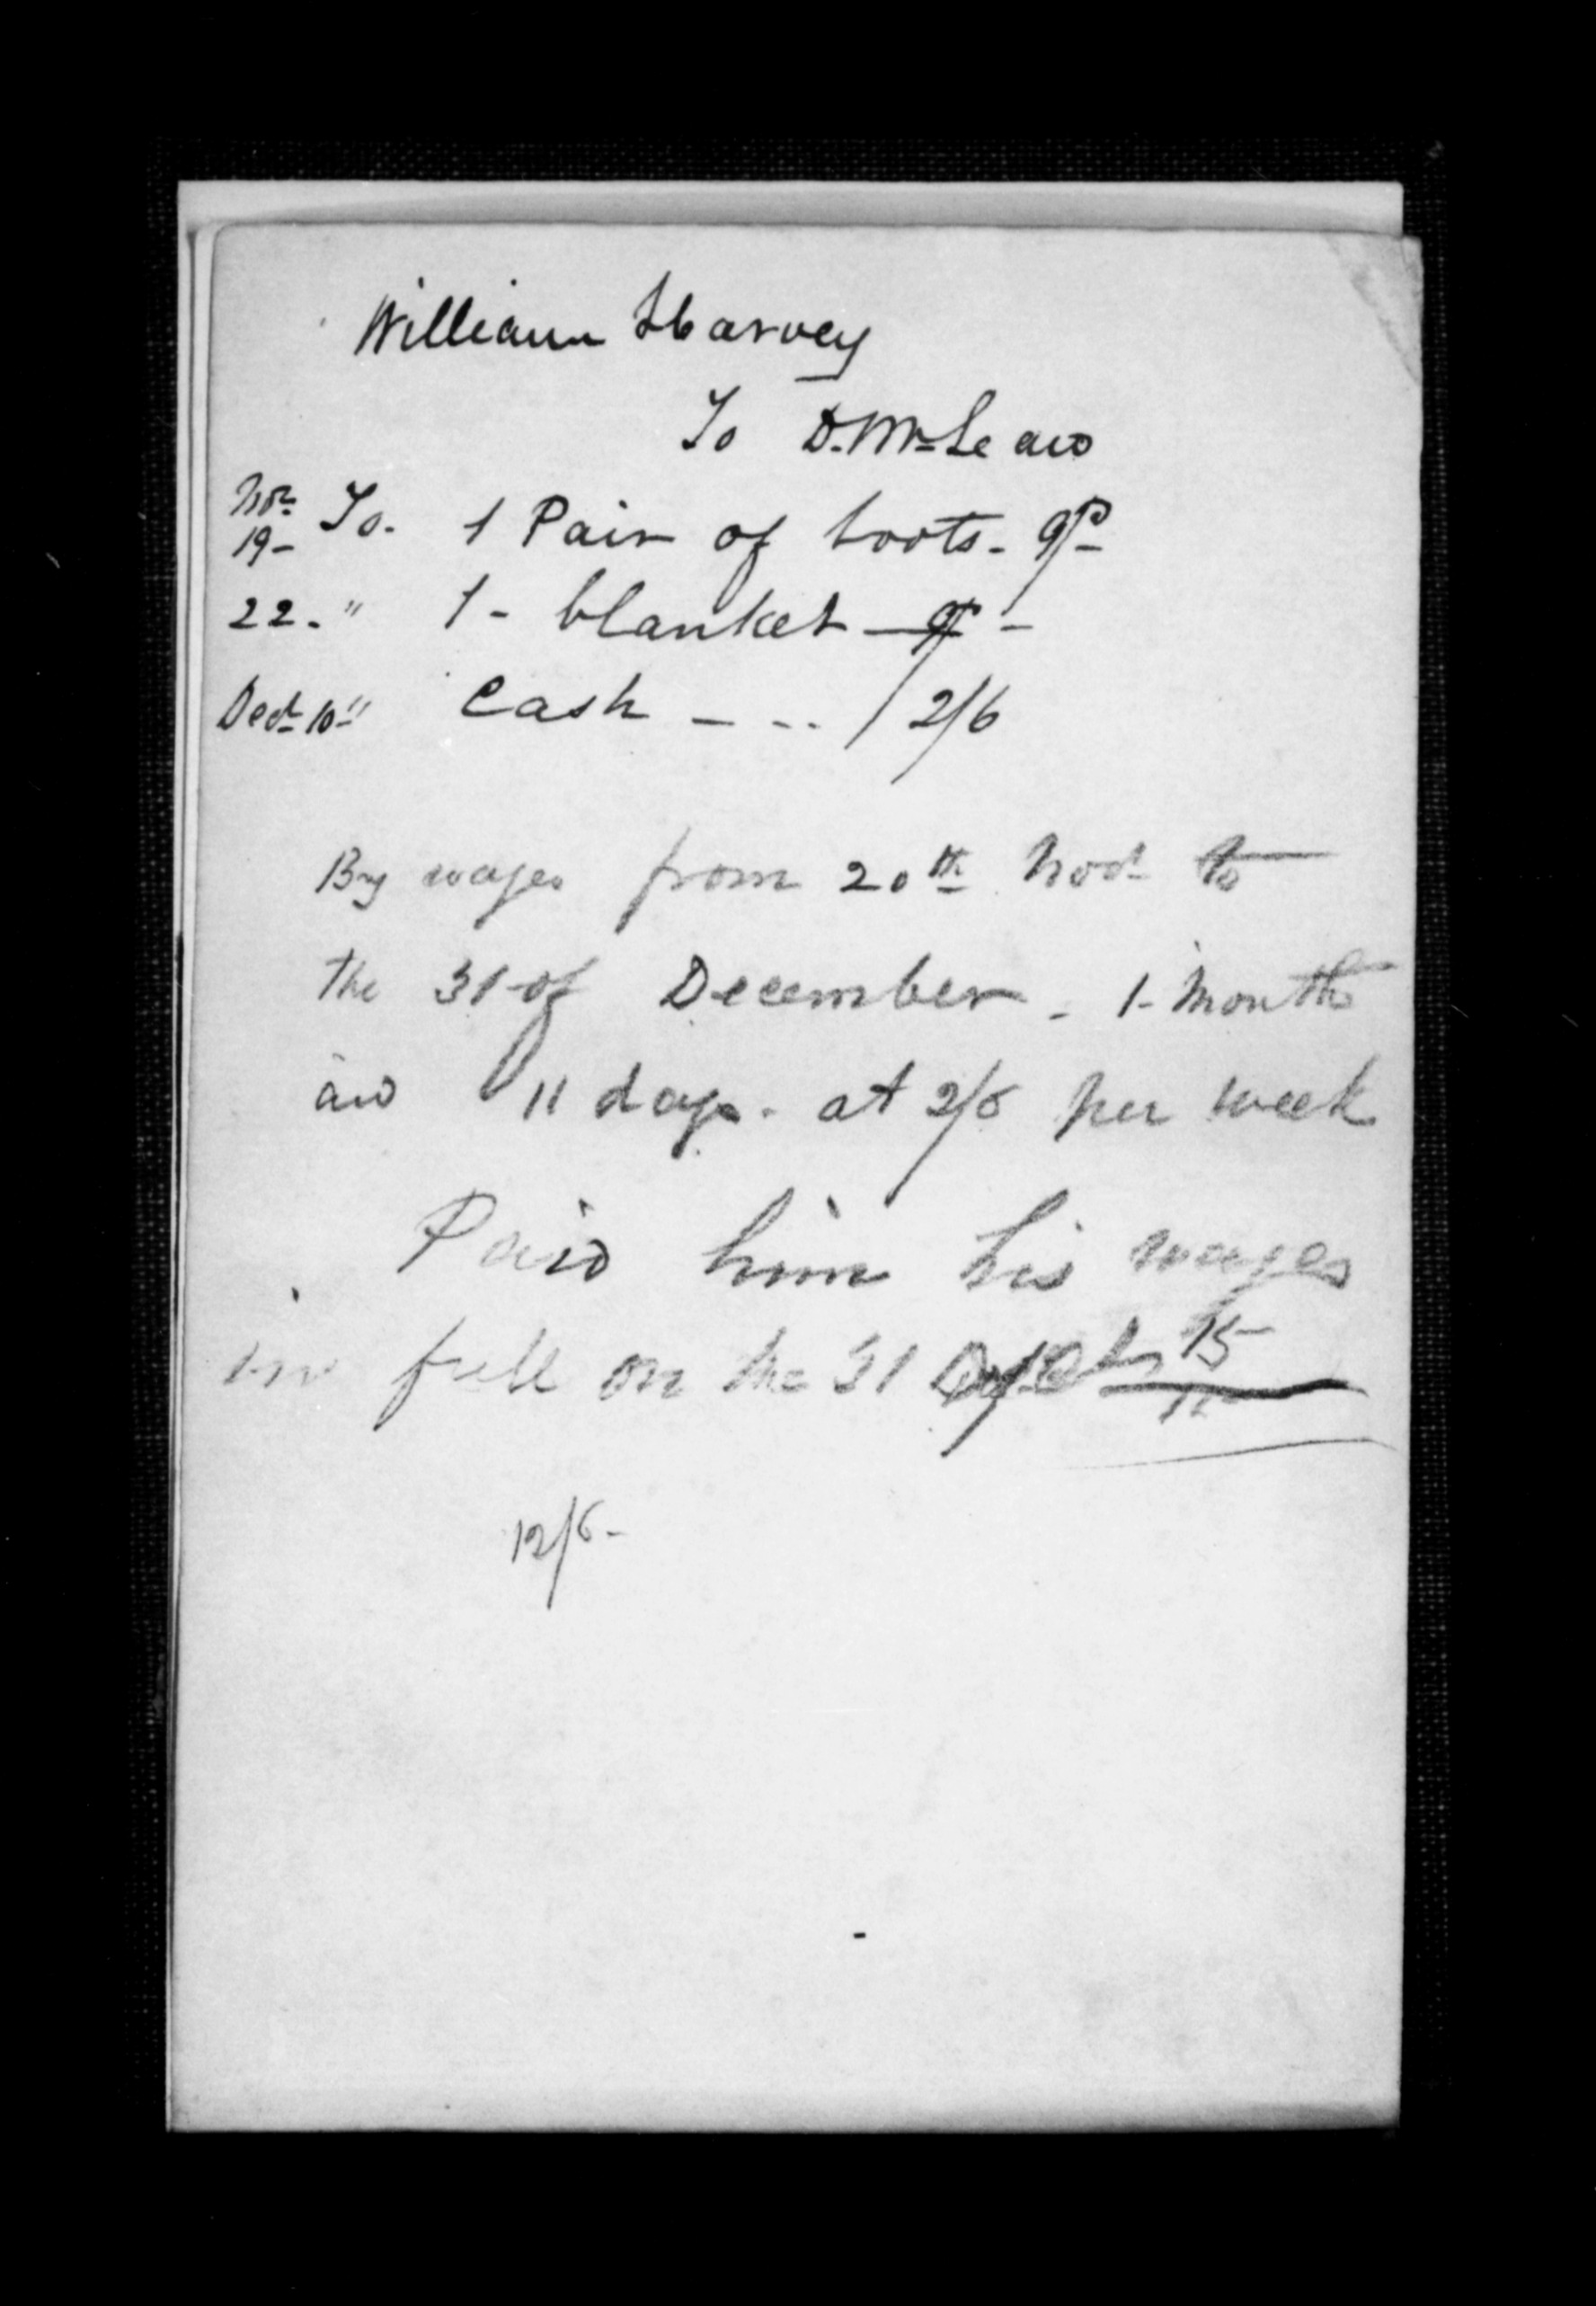 William Harvey
To D. McLean
Nov. 19 - To. 1 Pair of boots - 9/-
22 - " 1 - blanket - 9/- -
Dec. 10 " Cash - - - / 2/6
By wages from 20th Nov. to
the 31 of December - 1 - Month
and 11 days - at 2/6 per week
Paid him his wages
in full on the 31 15
12/6 -